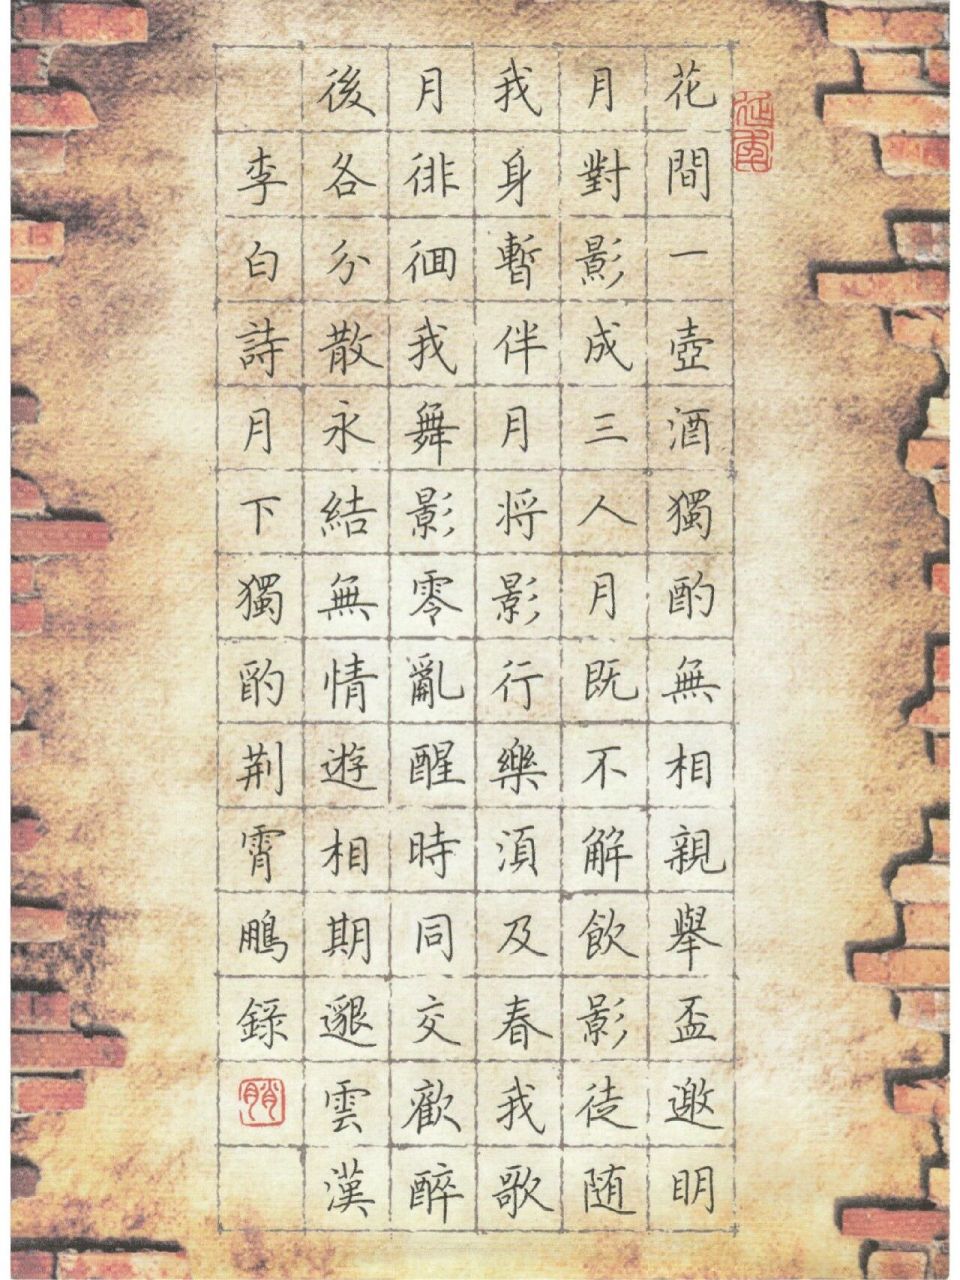 花間一壺酒獨酌無相親舉盃邀眀
月對影成三人月既不解飲影徒随
我身暫伴月将影行樂湏及春我歌
月徘徊我舞影零亂醒時同交歡醉
後各分散永結無情遊相期邈雲漢
李白詩月下獨酌荆霄鵬錄